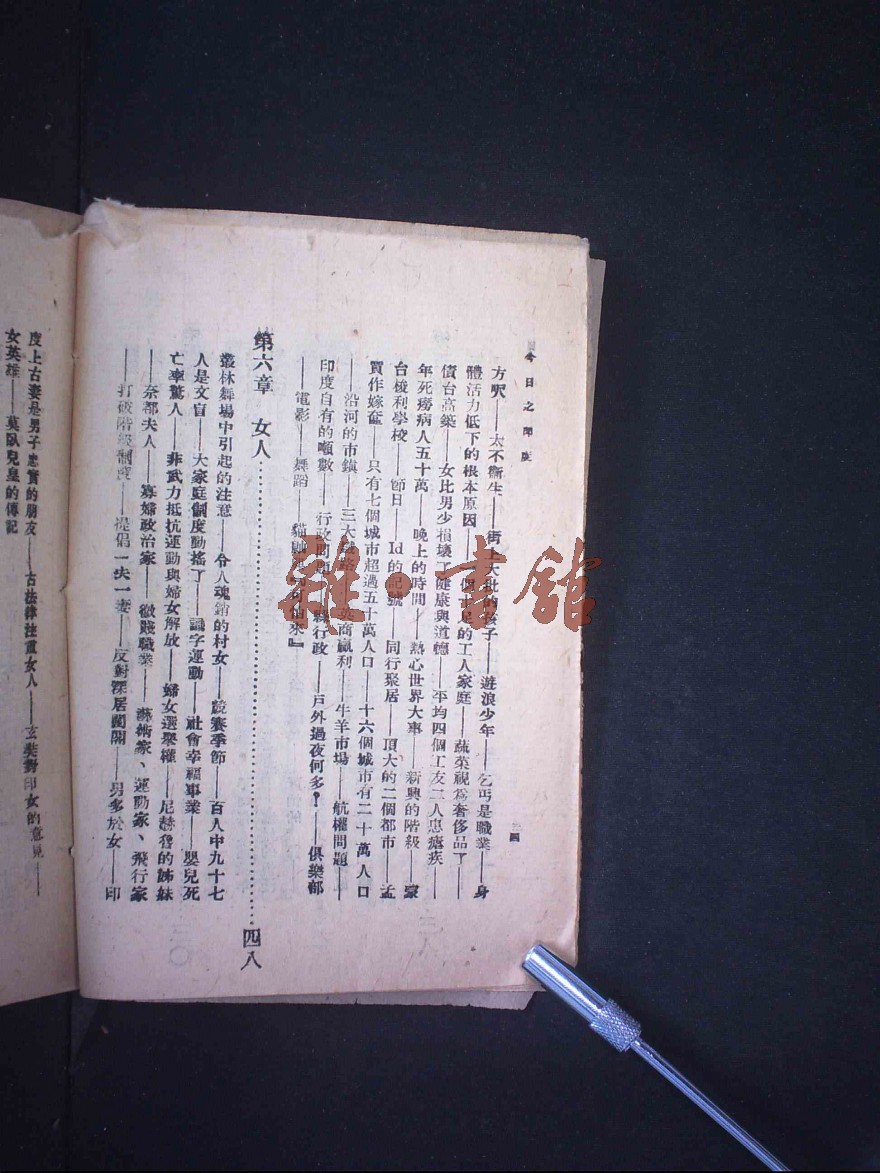 今日之印度
四
方呎——太不衞生——街上大批的瘋子——遊浪少年——乞丐是職業——身
體活力低下的根本原因——一個十足的工人家庭——蔬菜視爲奢侈品了——
債台高築——女比男少損壞了健康與道德——平均四個工友二人患瘧疾——
年死癆病人五十萬——晚上的時間——熱心世界大事——新興的階級——蒙
台梭利學校——節日——Id的記號——同行聚居——頂大的二個都市——孟
買作嫁奩——只有七個城市超過五十萬人口——十六個城市有二十萬人口
——沿河的市鎮——三大 英商贏利——牛羊市場——航權問題——
印度自有的噸數——行政問題——縣行政——戶外過夜何多？——俱樂部
——電影——舞蹈——貓 何由來』
第六章 女人…………………………四八
叢林舞場中引起的注意——令人魂銷的村女——競賽季節——百人中九十七
人是文盲——大家庭制度動搖了——識字運動——社會幸福事業——嬰兒死
亡率驚人——非武力抵抗運動與婦女解放——婦女選舉權——尼赫魯的姊妹
——奈都夫人——寡婦政治家——微賤職業——藝術家、運動家、飛行家
——打破階級制度——提倡一夫一妻——反對深居閨閣——男多於女——印
度上古妻是男子忠實的朋友——古法律注重女人——玄奘對印女的意見——
女英雄——莫臥兒皇的傳記
雜·書館